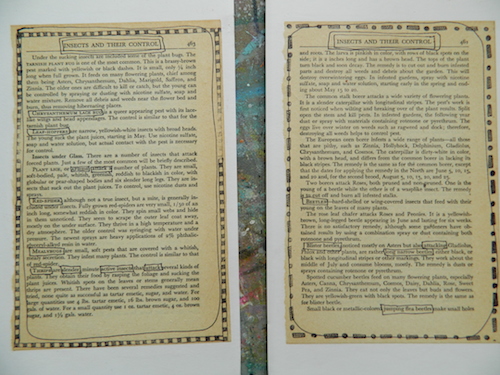 INSECTS AND THEIR CONTROL 463
Under the sucking insects are included some of the plant bugs. The
TARNISH PLANT BUG is one of the most common. This is a brassy brown
pest marked with yellowish or black dashes. It is small, only ¼ inch
long when full grown. It feeds on many flowering plants, chief among
them being Asters, Chrysanthemum, Dahlia, Marigold, Saffron, and
Zinnia. The older ones are difficult to kill or catch, but the young can
be controlled by spraying or dusting with nicotine sulfate, soap and
water mixture. Remove all debris and weeds near the flower bed and
burn, thus removing hibernating plants.
CHRYSANTHEMUM LACE BUG is a queer appearing pest with lace-
like wings and head appendages. The control is similar to that for the
tarnish plant bug.
LEAF-HOPPERS are narrow, yellowish-white insects with broad heads.
The young suck the plant juices, starting in May. Use nicotine sulfate,
soap and water solution, but actual contact with the pest is necessary
for control.
Insects under Glass. There are a number of insects that attack
forced plants. Just a few of the most common will be briefly described.
PLANT LICE, or attack a number of plants. They are small,
soft-bodied, pale, reddish to blackish in color, with
globular or pear-shaped bodies and six slender long legs. They are in-
sects that suck out the plant juices. To control, use nicotine dusts and
sprays.
RED-SPIDER, although not a true insect, but a mite, is generally in-
cluded under insects. Fully grown red-spiders are very small, 1/50 of an
inch long, somewhat reddish in color. They spin small webs and hide
in them unnoticed. They seem to scrape the outer leaf coat away,
mostly on the under surface. They thrive in a high temperature and a
dry atmosphere. The older control was syringing with water under
pressure. The newest sprays are heavy applications of 2% globulic-
alcohol oil in water.
MEALYBUGS are small, soft pests that are covered with a whitish,
mealy secretion. They infest many plants. The control is similar to that
of red-spider.
THRIPS are slender, minute, active insects that attack several kinds of
plants. They secure their food by the foliage and sucking the
plant juices. Whitish spots on the leaves or stems generally mean
thrips are present. There have been several remedies suggested and
used, none quite so successful as tartar emetic, sugar, and water. For
large quantities use 4 lbs. tartar emetic, 16 lbs. brown sugar, and 100
gals. of water. For a small quantity use 1 oz. tartar emetic, 4 oz. brown
sugar, and 1½ gals. water.
INSECTS AND THEIR CONTROL 461
and roots. The larva is pinkish in color, with rows of black spots on the
side; it is 2 inches long and has a brown head. The tops of the plant
turn black and soon decay. The remedy is to cut out and burn infested
parts and destroy all weeds and debris about the garden. This will
destroy overwintering eggs. In infested gardens, spray with nicotine
sulfate, soap and water solution, starting early in the spring and end-
ing about May 15 to 20.
The common stalk borer attacks a wide variety of flowering plants.
It is a slender caterpillar with longitudinal stripes. The pest's work is
first noticed when wilting and breaking over of the plant results. Split
open the stem and kill pests. In infested gardens, the following year
dust or spray with materials containing rotenone or pyrethrum. The
eggs live over winter on weeds such as ragweed and dock; therefore,
destroying all weeds helps to control pest.
The European corn borer infests a wide range of plants—all those
that are pithy, such as Zinnia, Hollyhock, Delphinium, Gladiolus,
Chrysanthemum, and Cosmos. The caterpillar is dirty-white in color,
with a brown head, and differs from the common borer in lacking its
black stripes. The remedy is the same as for the common borer, except
that the dates for applying the remedy in the North are June 5, 10, 15,
and 20 and, for the second brood, August 5, 10, 15, and 20.
Two borers attack Roses, both pruned and non-pruned. One is the
young of a beetle while the other is of a wasplike insect. The remedy
is to cut off and burn all infested stalks.
BEETLES are hard-shelled or wing-covered insects that feed with their
jaws on the leaves of many plants.
The rose leaf chafer attacks Roses and Peonies. It is a yellowish-
brown, long-legged beetle appearing in June and lasting for six weeks.
There is no satisfactory remedy, although some gardeners have ob-
tained results by using a combination spray or dust containing both
rotenone and pyrethrum.
Blister beetles, noticed mostly on Asters but also attacking Gladiolus,
Phlox, and other plants, are long, narrow black,
with black or with longitudinal stripes or small markings. They work about the
middle of July and consume blooms, mostly. The remedy is dusts or
sprays containing rotenone or pyrethrum.
Spotted cucumber beetles feed on many flowering plants, especially
Asters, Canna, Chrysanthemum, Cosmos, Daisy, Dahlia, Rose, Sweet
Pea, and Zinnia. They eat not only the leaves but buds and flowers.
They are yellowish-green with black spots. The remedy is the same as
for blister beetle.
Small black or metallic-colored, jumping flea beetles make small holes